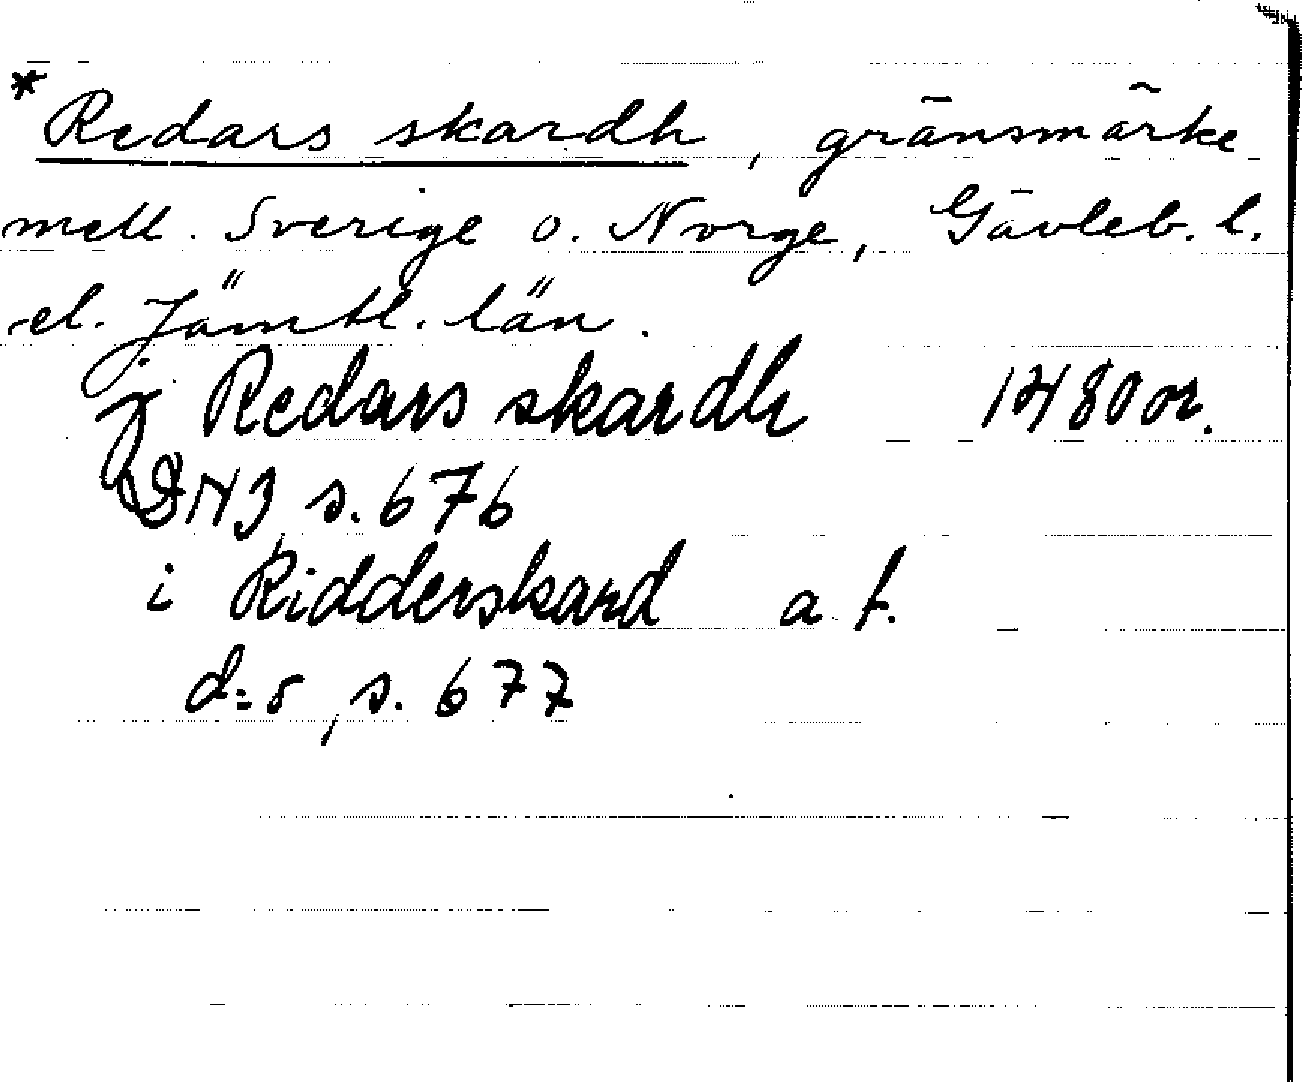 * Redars skardh, gränsmärke
mell. Sverige o. Norge, Gävleb. l.
el. Jämtl. län.
j Redars skardh 1480 or.
DN3, s. 676
i Ridderskard a f.
d:o, s. 677